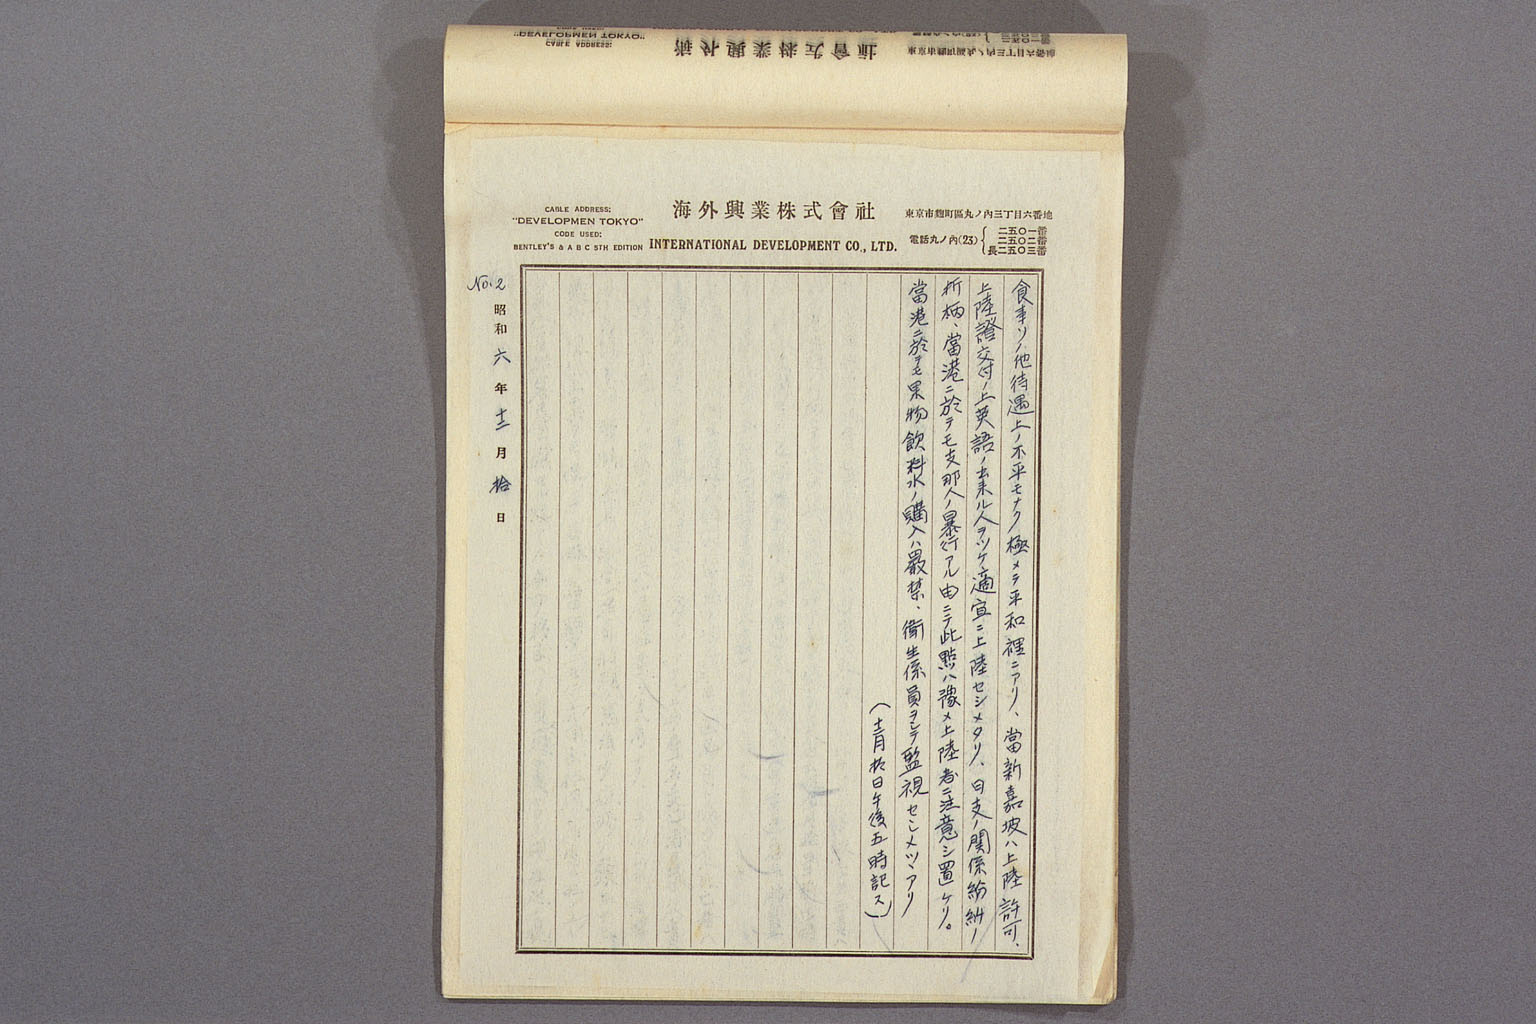 CABLE ADDRESS;
"DEVELOPMEN TOKYO"
CODE USED;
BENTLEY'S & A B C 5TH EDITION
海外興業株式會社
INTERNATIONAL DEVELOPMENT CO., LTD.
東京市麴町區丸ノ內三丁目六番地
電話丸ノ內(23)
二五〇一番
二五〇二番
長二五〇三番
食事ソノ他待遇上ノ不平モナク極メテ平和裡ニアリ、當新嘉坡ハ上陸許可、
上陸證交付ノ上英語ノ出来ル人ヲツケ適宜ニ上陸セシメタリ、日支ノ關係紛糾ノ
折柄、當港ニ於テモ支那人ノ暴行アル由ニテ此點ハ豫メ上陸者ニ注意シ置ケリ。
當港ニ於テモ果物飲料水ノ購入ハ嚴禁、衛生係員ヲシテ監視セシメツヽアリ
(十二月拾日午後五時記ス)
No. 2
昭和六年十二月拾日